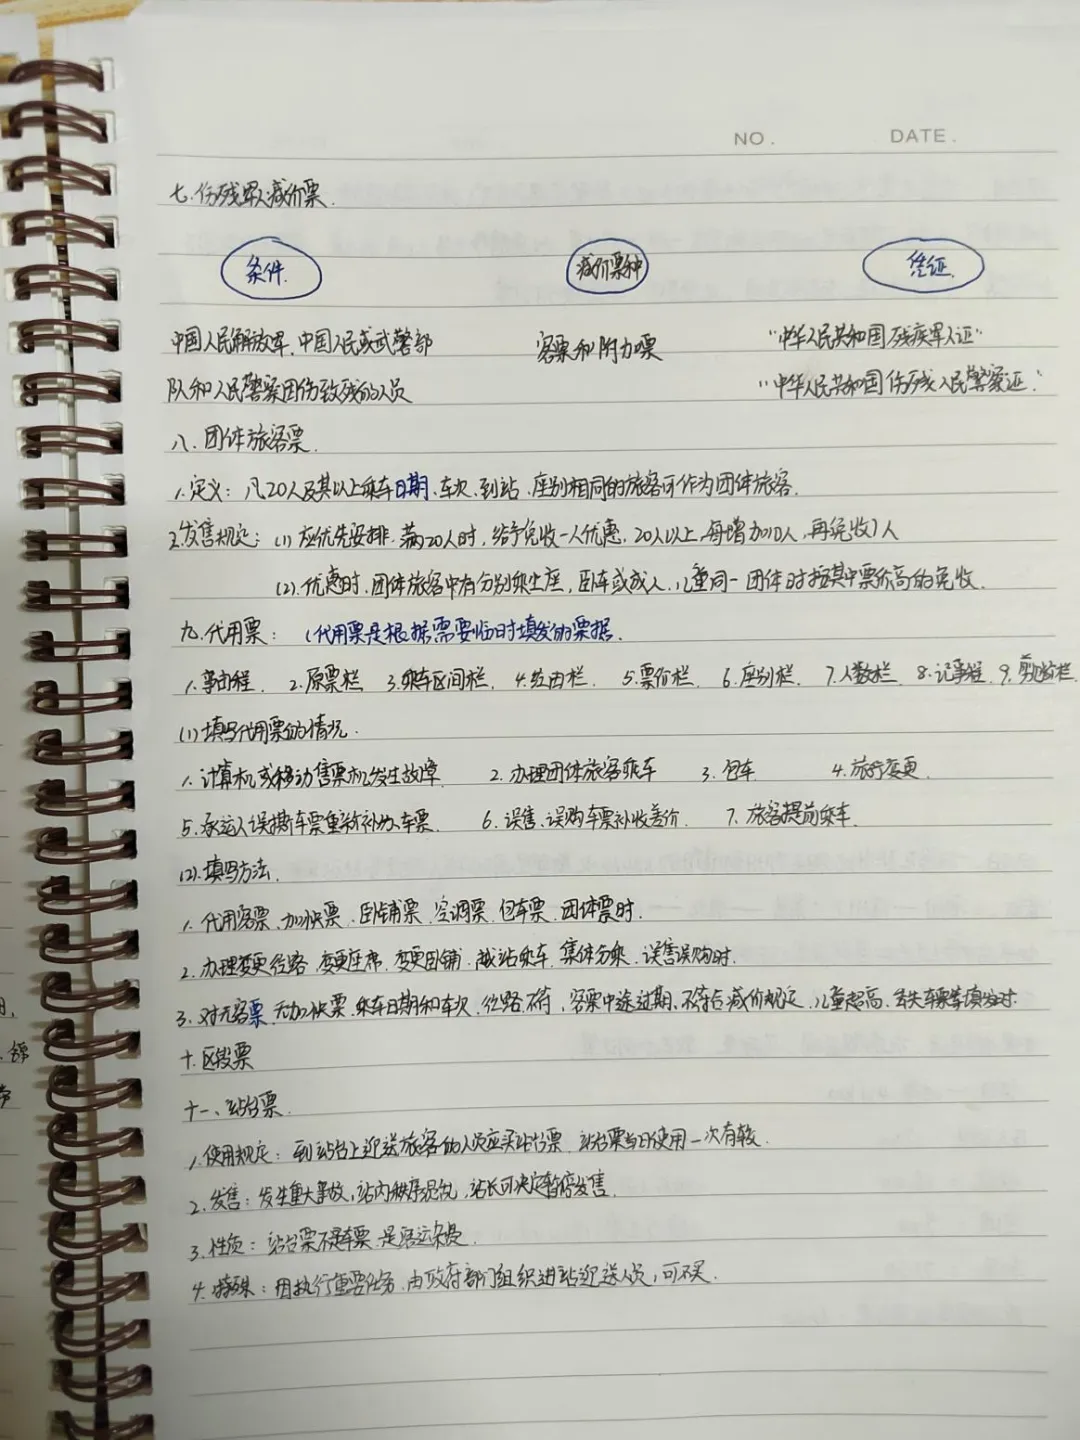 NO. DATE.
七.伤残军人减价票.
条件. 减价票种 凭证.
中国人民解放军、中国人民武警部 客票和附加票 "中华人民共和国残疾军人证"
队和人民警察因伤致残的人员 "中华人民共和国伤残人民警察证."
八.团体旅客票.
1.定义:凡20人及其以上乘车日期、车次、到站、座别相同的旅客可作为团体旅客.
2.发售规定:(1)应优先安排.满20人时,给予免收一人优惠,20人以上,每增加10人,再免收1人
(2).优惠时,团体旅客中有分别乘坐座,卧车或成人、儿童同一团体时按其中票价高的免收.
九.代用票:(代用票是根据需要临时填发的票据.
1.事由栏. 2.原票栏 3.乘车区间栏. 4.经由栏. 5.票价栏. 6.座别栏. 7.人数栏 8.记事栏. 9.剪断栏.
(1)填写代用票的情况.
1.计算机或移动售票机发生故障 2.办理团体旅客乘车 3.包车 4.旅行变更.
5.承运人误撕车票重新补办车票. 6.误售、误购车票补收差价. 7.旅客提前乘车.
(2).填写方法.
1.代用客票.加快票.卧铺票.空调票.包车票.团体票时.
2.办理变更径路.变更座席.变更卧铺.越站乘车.集体分乘.误售误购时.
3.对无客票,无加快票.乘车日期和车次.径路不符,客票中途过期.不符合减价规定.儿童超高.丢失车票等填发时.
十.区段票
十一、站台票.
1.使用规定:到站台上迎送旅客的人员应买站台票.站台票当日使用一次有效.
2.发售:发生重大事故,站内秩序混乱,站长可决定暂停发售.
3.性质:站台票不是车票.是客运杂费.
4.特殊:因执行重要任务.由政府部门组织进站迎送人员,可不买.